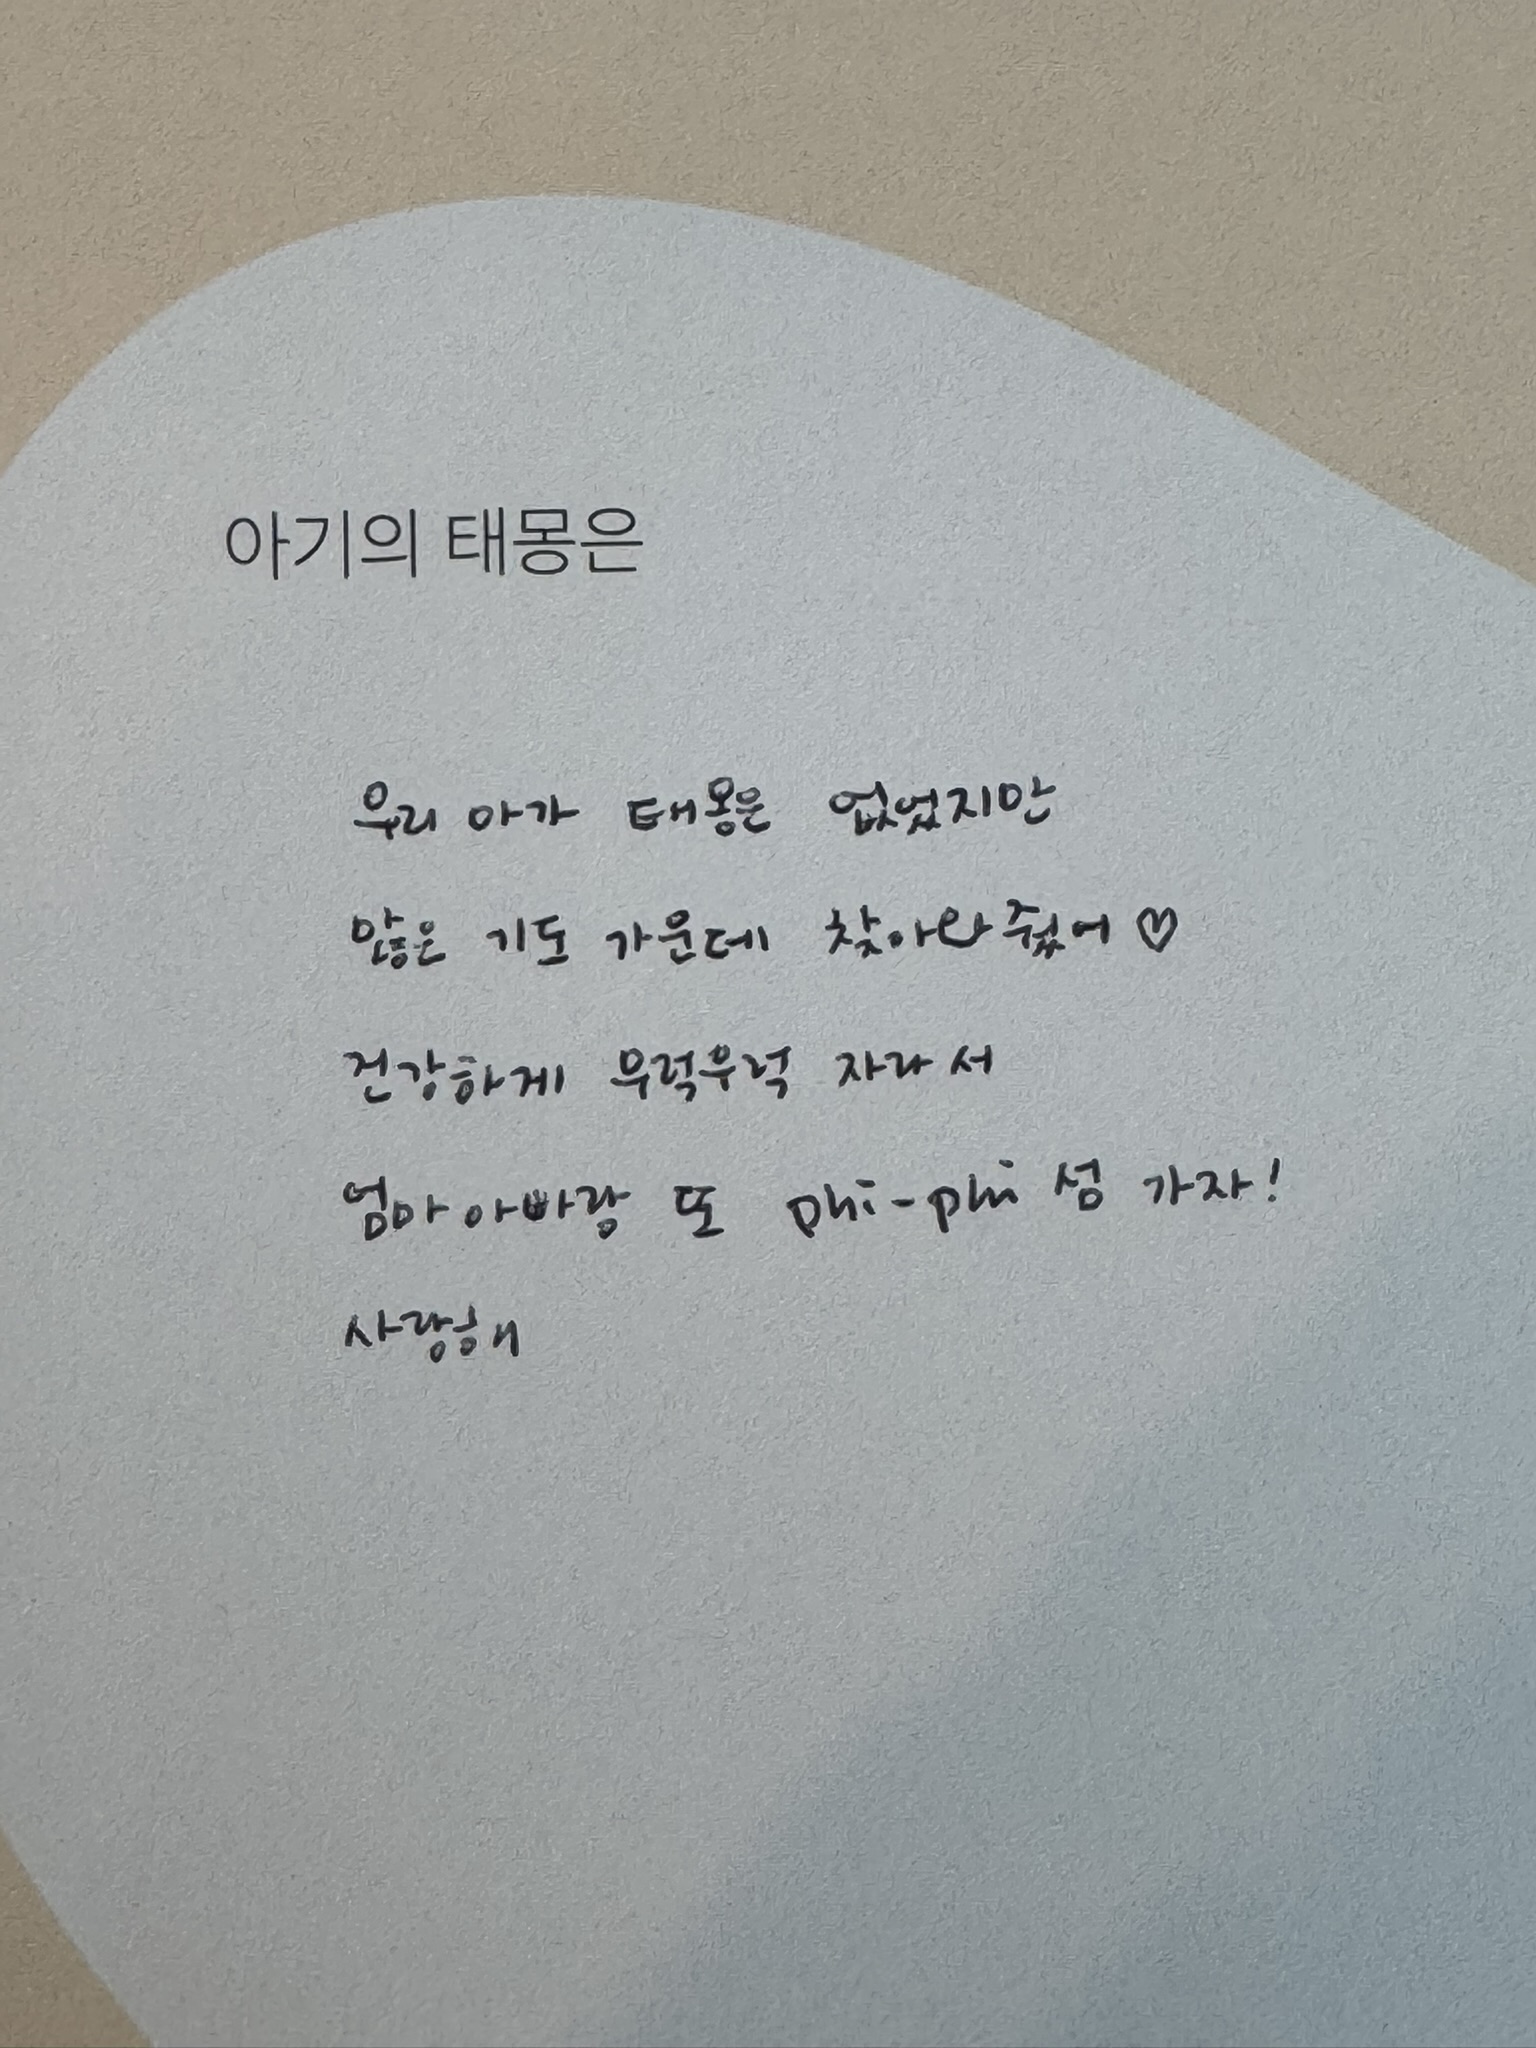 아기의 태몽은
우리 아가 태몽은 없었지만
많은 기도 가운데 찾아와줬어♡
건강하게 무럭무럭 자라서
엄마아빠랑 또 phi-phi 섬 가자!
사랑해